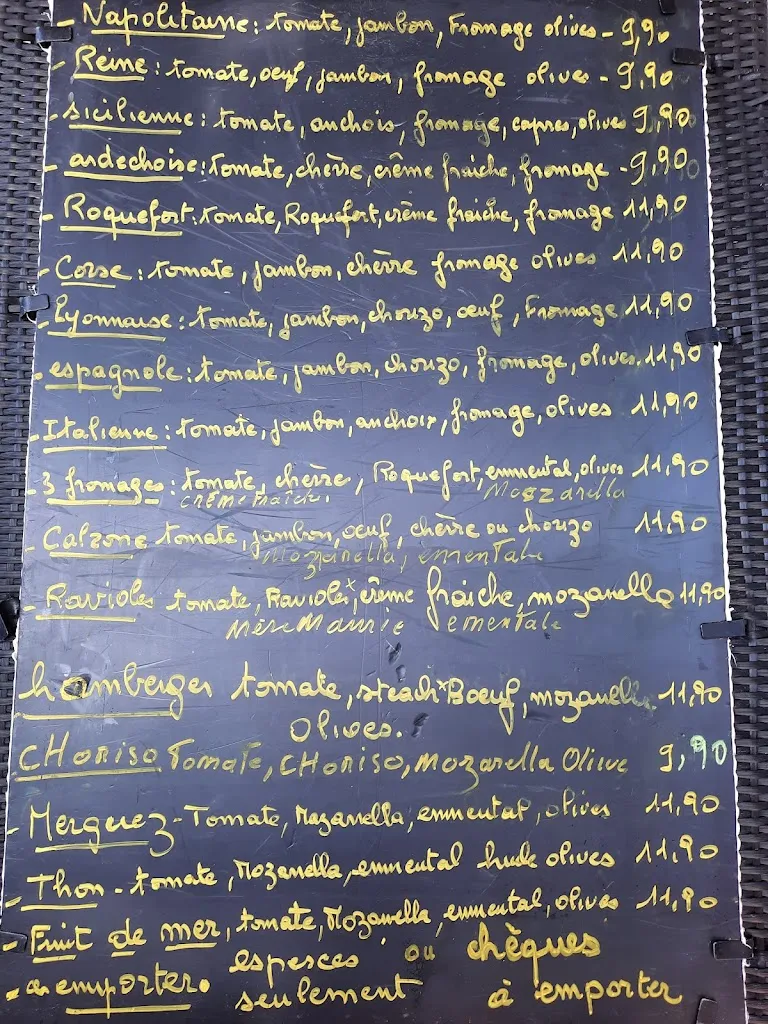 - Napolitaine : tomate, jambon, Fromage olives - 9,90
- Reine : tomate, oeuf, jambon, fromage olives - 9,90
- sicilienne : tomate, anchois, fromage, capres, olives 9,90
- ardechoise : tomate, chèvre, crême fraiche, fromage - 9,90
- Roquefort : tomate, Roquefort, crême fraiche, fromage 11,90
- Corse : tomate, jambon, chèvre fromage olives 11,90
- Lyonnaise : tomate, jambon, chorizo, oeuf, Fromage 11,90
- espagnole : tomate, jambon, chorizo, fromage, olives 11,90
- Italienne : tomate, jambon, anchois, fromage, olives 11,90
- 3 fromages : tomate, chèvre, Roquefort, emmental, olives 11,90
crême fraîche, Mozzarella
- Calzone tomate, jambon, oeuf, chèvre ou chorizo 11,90
Mozzarella, ementale
- Ravioles tomate, Ravioles, crême fraiche, mozarella 11,90
Mère Maurie ementale
hamberger tomate, steack Boeuf, mozarella 11,90
Olives.
CHORISO Tomate, CHORISO, Mozarella Olive 9,90
- Merguez - Tomate, Mozarella, emmental, olives 11,90
- Thon - tomate, Mozarella, emmental huile olives 11,90
- Fruit de mer, tomate, Mozarella, emmental, olives 11,90
- a emporter. especes ou chèques
seulement à emporter